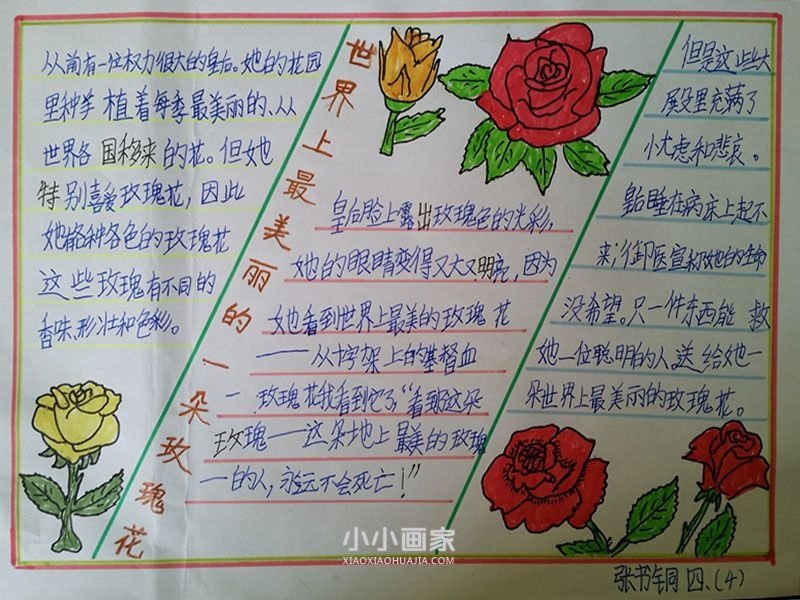 世界上最美丽的一朵玫瑰花
从前有一位权力很大的皇后。她的花园
里种 植着每季最美丽的、从
世界各国移来的花。但她
特别喜爱玫瑰花，因此
她 各种各色的玫瑰花
这些玫瑰有不同的
香味、形 和色彩。
皇后脸上露出玫瑰色的光彩，
她的眼睛变得又大又明亮，因为
她看到世界上最美的玫瑰花
——从十字架上的基督血
一 玫瑰花我看到它了“看到这朵
玫瑰——这朵地上最美的玫瑰
一的人，永远不会死亡！”
但是这些大
里充满了
忧虑和悲哀。
皇后睡在病床上起不
来，御医宣称她的生命
没希望。只一件东西能 救
她一位聪明的人，送给她一
朵世界上最美丽的玫瑰花。
小小画家
XIAOXIAOHUAJIA.COM
张书铜 四、（4）